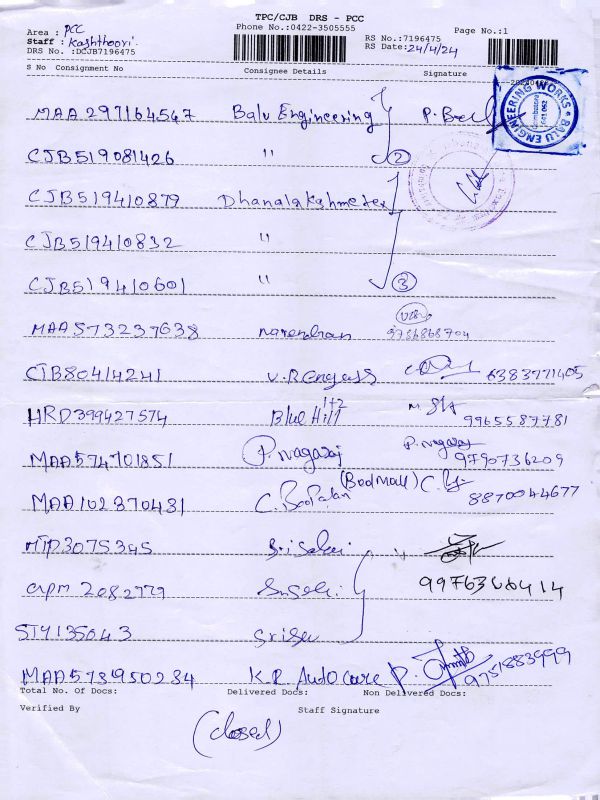 TPC/CJB DRS - PCC
Phone No.:0422-3505555
Area : PCC
Staff : Kashthoori.
DRS No. :DCJB7196475
RS No.:7196475
RS Date:24/4/24
Page No.:1
S No Consignment No Consignee Details Signature
MAA 297164547 Balu Engineering
CJB519081426 " 2
CJB519410879 Dhanalakshmi tex
CJB519410832 "
CJB519410601 " 3
MAA573237638 Narendran 9786868704
CJB80414241 V. Rengass 6383771405
HRD399427574 Blue Hill 1+2 9965587781
MAA574701851 P. Nagaraj P. Nagaraj 9790736209
MAA102870431 (Bodmall) 8870044677
MTP3075345 Sri Saki
2082779
STY135043
9976366414
MAA573950234 K.R Auto care 9751883999
Total No. Of Docs: Delivered Docs: Non Delivered Docs:
Verified By Staff Signature
(closed)
BALU ENGINEERING WORKS